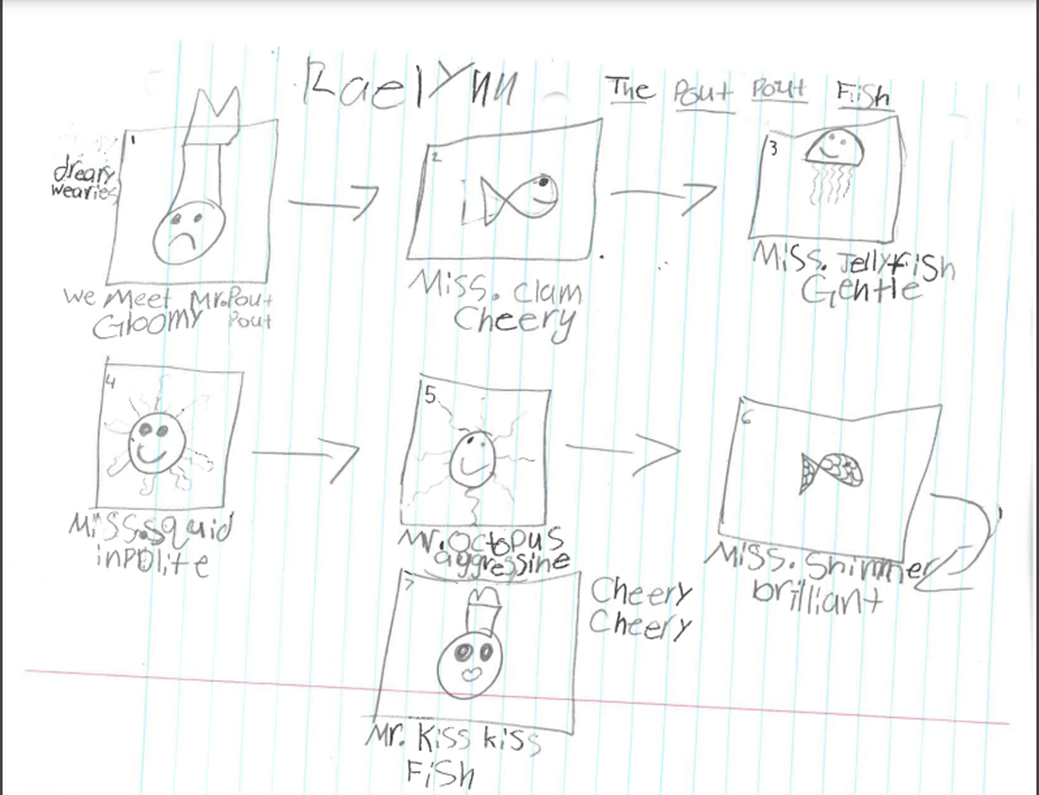 RaelYnn
The Pout Pout Fish
1
dreary
wearies
We Meet Mr. Pout
Gloomy Pout
2
Miss. Clam
Cheery
3
Miss. Jellyfish
Gentle
4
Miss. squid
inpolite
5
Mr. Octopus
aggressine
6
Miss. Shimmer
brilliant
7
Cheery
Cheery
Mr. Kiss kiss
Fish